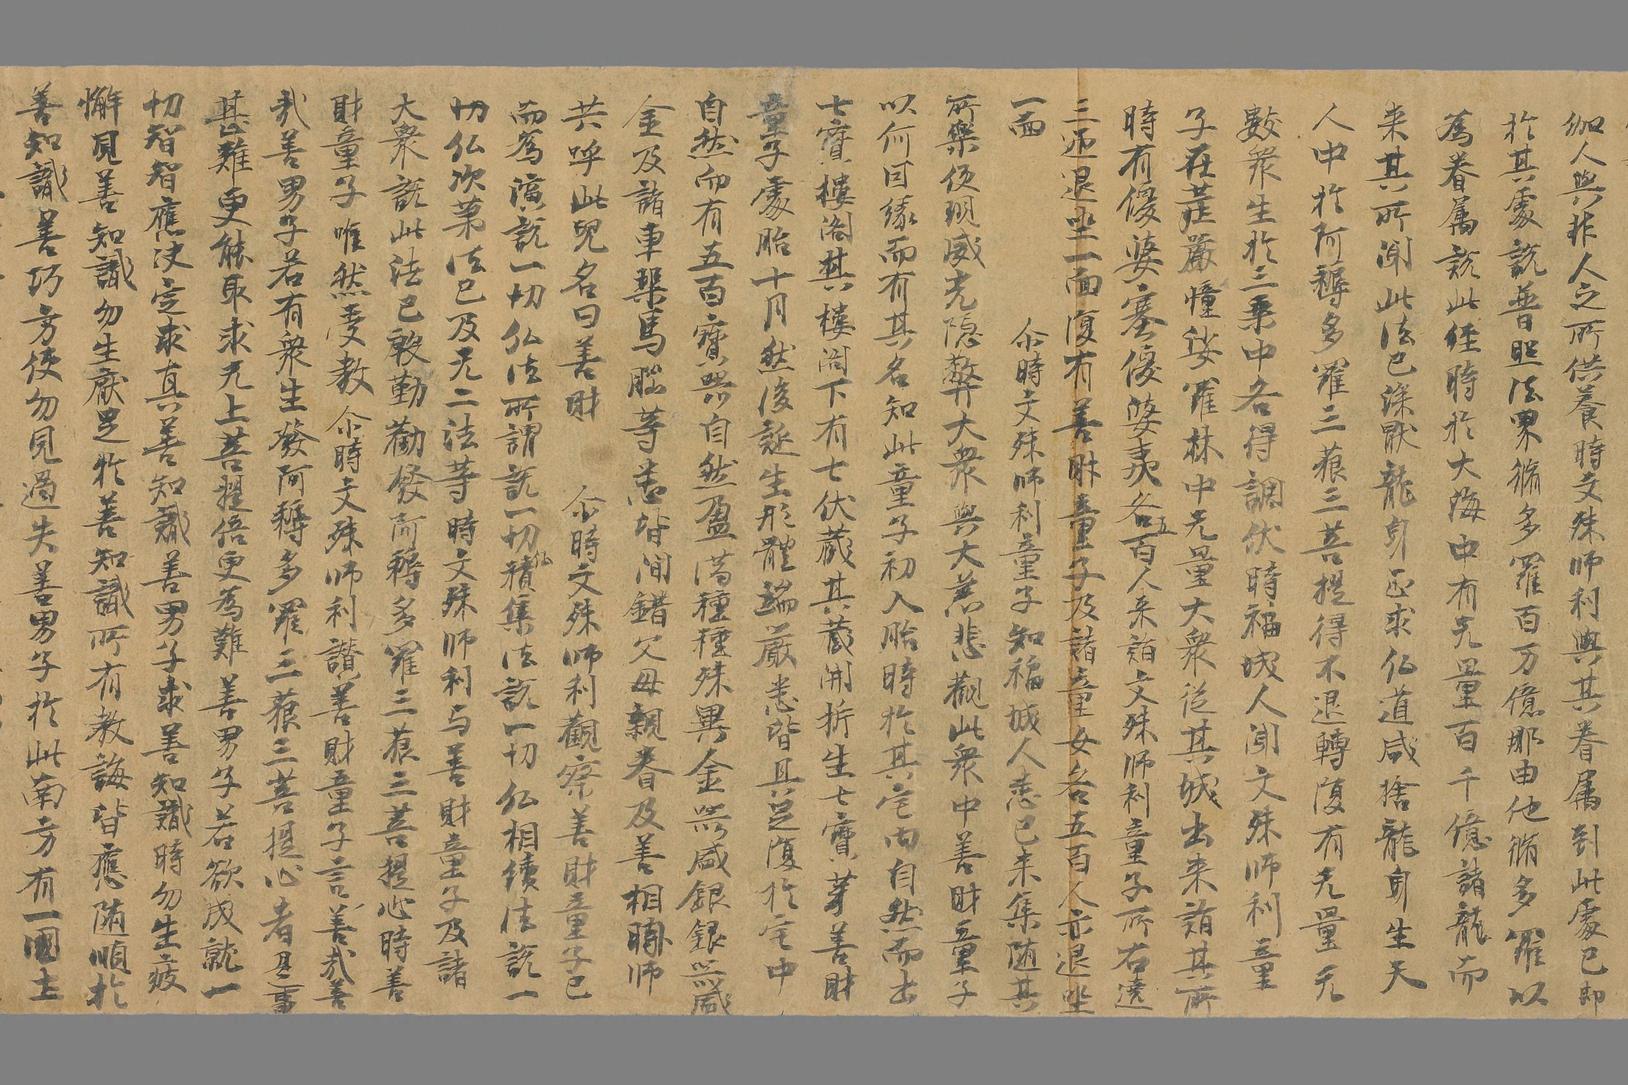 伽人與非人之所供養時文殊師利與其眷属到此處已即
於其處說普照法界脩多羅百万億那由他脩多羅以
為眷属說此経時於大海中有无量百千億諸龍而
来其所聞此法已深猒龍身正求仏道咸捨龍身生天
人中於阿耨多羅三藐三菩提得不退轉復有无量无
數衆生於三乗中各得調伏時福城人聞文殊師利童
子在荘嚴幢娑羅林中无量大衆從其城出来詣其所
時有優婆塞優婆夷各五百人来詣文殊師利童子所右遶
三迊退坐一面復有善財童子及諸童女各五百人亦退坐
一面 尒時文殊師利童子知福城人悉已来集随其
所樂使現威光隠弊大衆與大慈悲觀此衆中善財童子
以何因縁而有其名知此童子初入胎時於其宅内自然而出
七寳樓閣其樓閣下有七伏蔵其蔵開拆生七寳芽善財
童子處胎十月然後誕生形體端嚴悉皆具足復於宅中
自然而有五百寳器自然盈満種種殊異金器咸銀銀器咸
金及諸車栗馬腦等悉皆間錯父母親眷及善相師
共呼此兒名曰善財 尒時文殊師利觀察善財童子已
而為演說一切仏法所謂說一切仏積集法說一切仏相續法說一
切仏次第法已及无二法等時文殊師利与善財童子及諸
大衆說此法已慇勤勸發阿耨多羅三藐三菩提心時善
財童子唯然受教尒時文殊師利讃善財童子言善哉善
哉善男子若有衆生發阿耨多羅三藐三菩提心者是事
甚難更能取求无上菩提倍更為難善男子若欲成就一
切智智應决定求真善知識善男子求善知識時勿生疲
懈見善知識勿生厭足於善知識所有教誨皆應随順於
善知識善巧方便勿見過失善男子於此南方有一國土